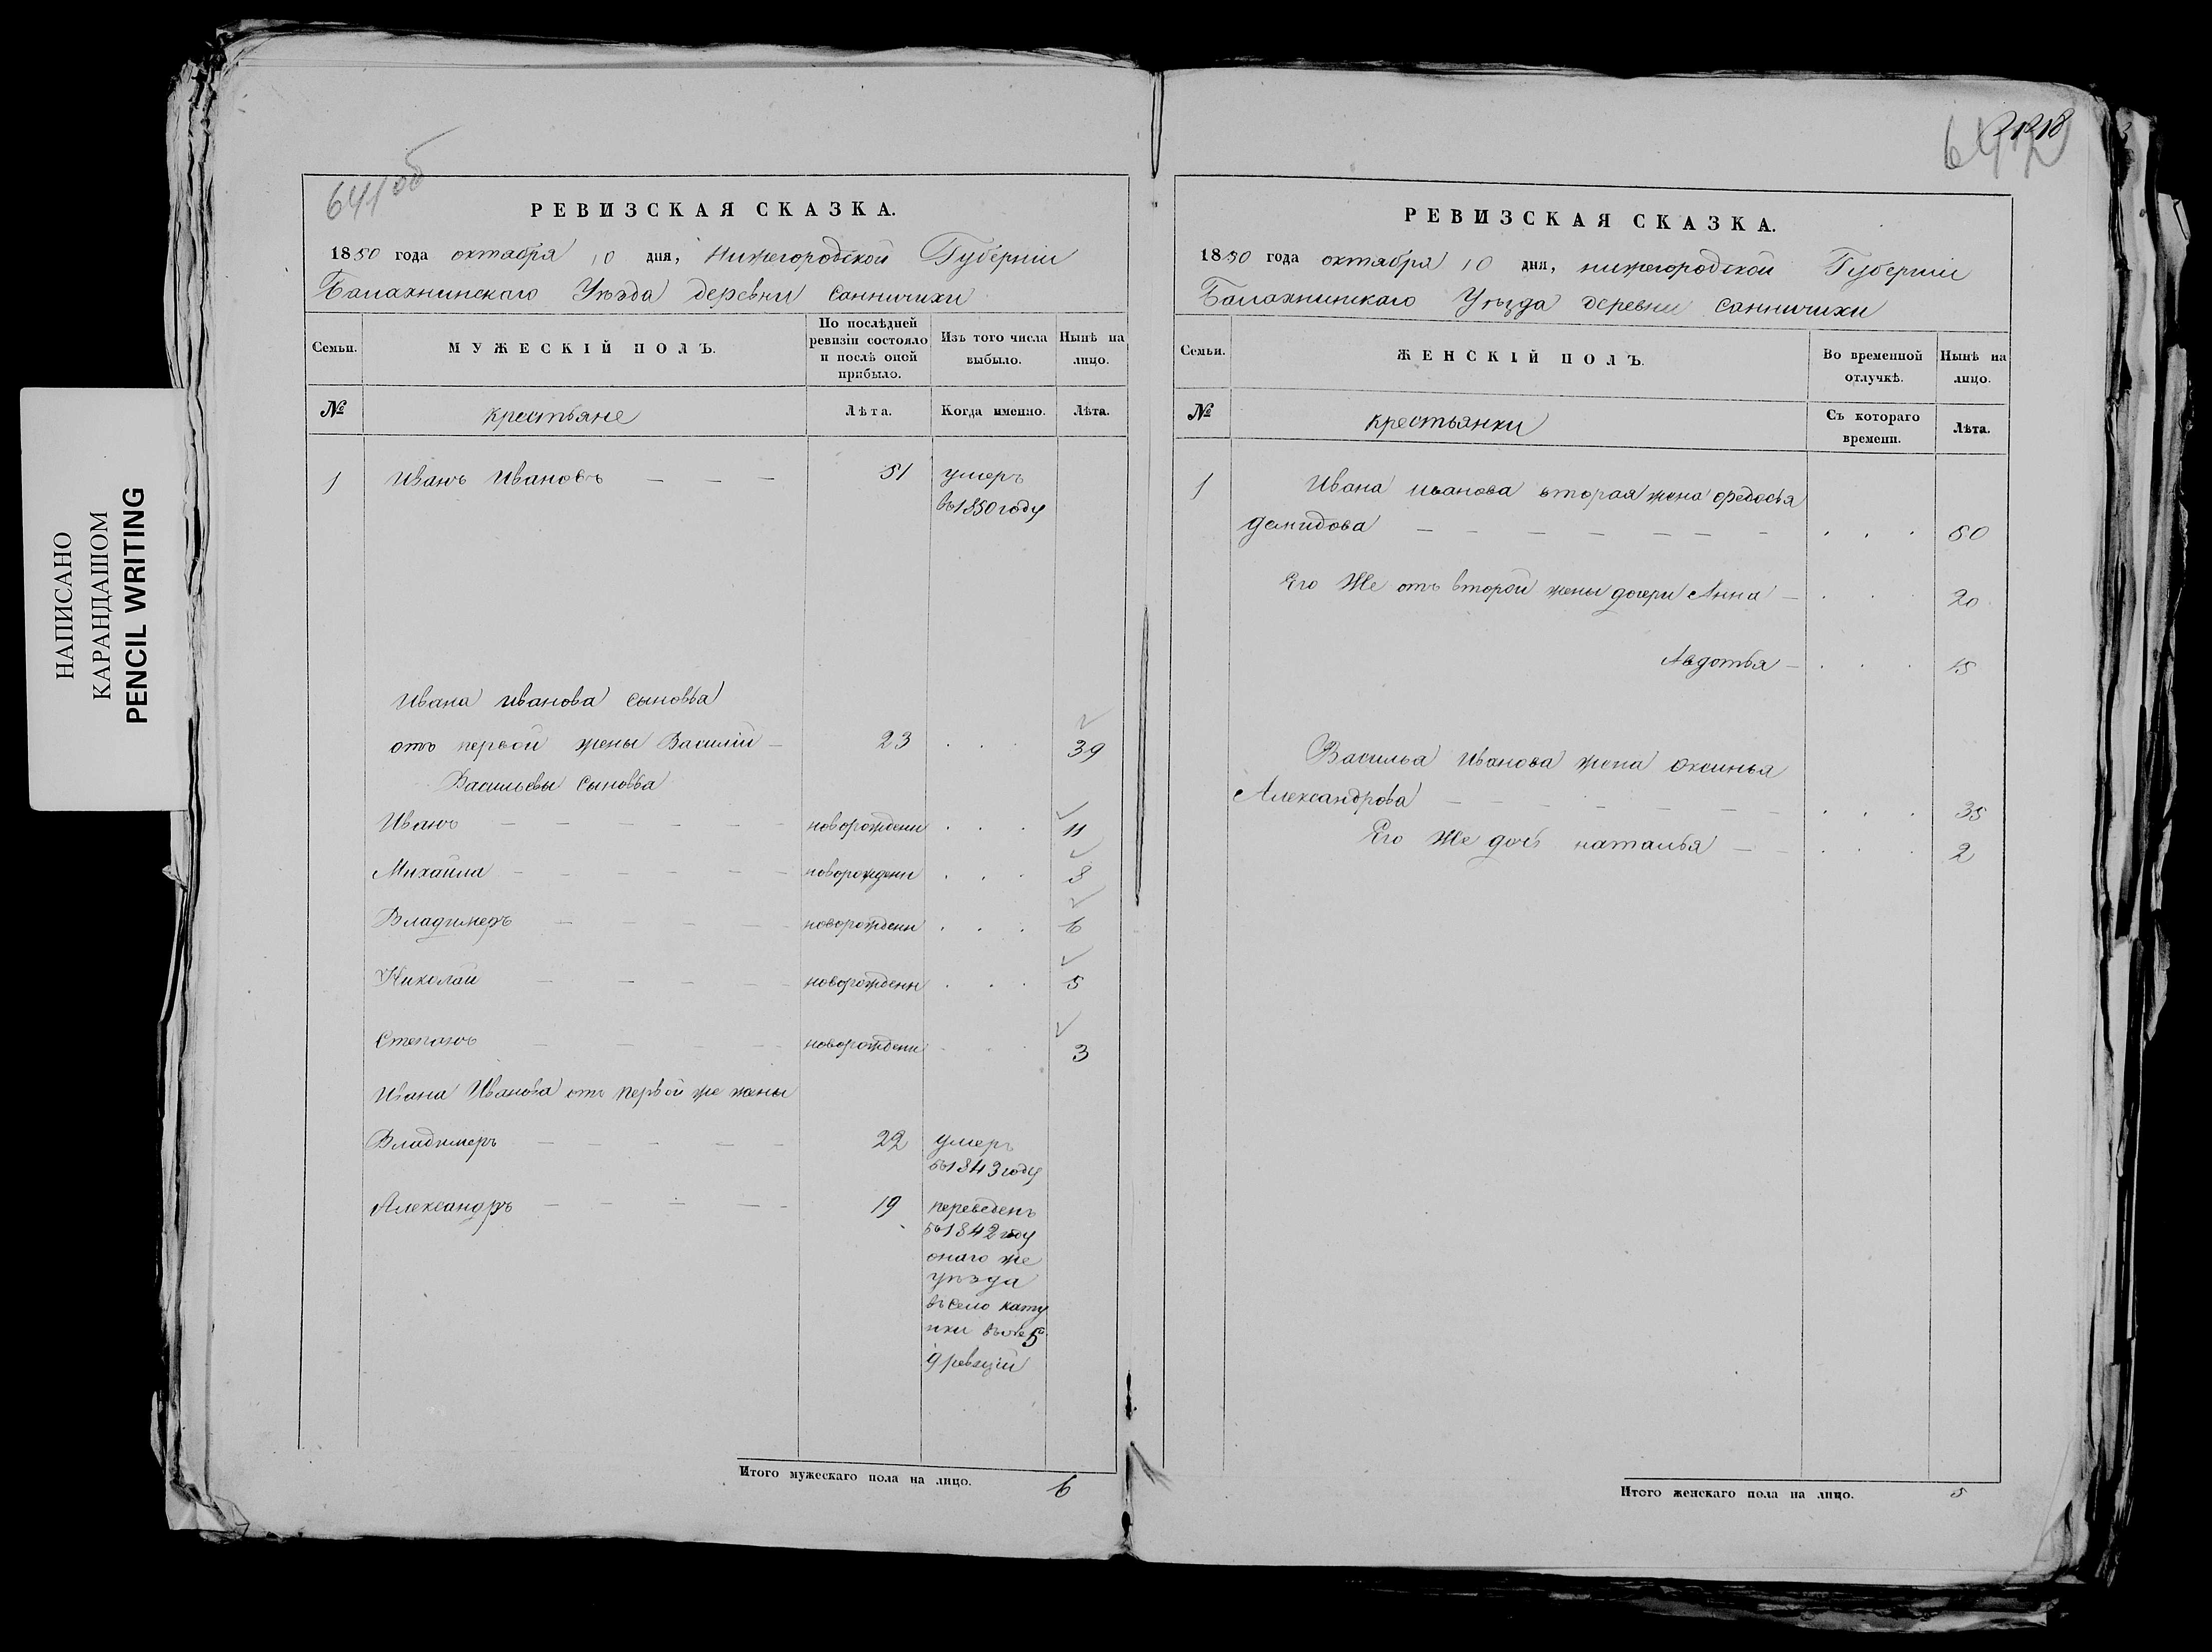 НАПИСАНО
КАРАНДАШОМ
PENCIL WRITING
641 об
РЕВИЗСКАЯ СКАЗКА.
1850 года октября 10 дня, Нижегородской Губернии
Балахнинскаго Уѣзда деревни Санничихи
Семьи.
МУЖЕСКІЙ ПОЛЪ.
По послѣдней ревизіи состояло и послѣ оной прибыло.
Изъ того числа выбыло.
Нынѣ на лицо.
№
крестьяне
Лѣта.
Когда именно.
Лѣта.
1 Иванъ Ивановъ — — — 51 умеръ
въ 1850 году
Ивана Иванова сыновья
отъ первой жены Василій — 23 . . . 39
Васильевы сыновья
Иванъ — — — — — — новорожденн . . . 11
Михайла — — — — — — новорожденн . . . 8
Владимеръ — — — — новорожденн . . . 6
Николай — — — — — новорожденн . . . 5
Степанъ — — — — новорожденн . . . 3
Ивана Иванова отъ первой же жены
Владимеръ — — — — — 22 умеръ
въ 1843 году
Александръ — — — — - 19 переведенъ
въ 1842 году
онаго же
уѣзда
въ село кату
нки
9 ревизіи
Итого мужескаго пола на лицо. 6
1218
642
РЕВИЗСКАЯ СКАЗКА.
1850 года октября 10 дня, нижегородской Губернии
Балахнинскаго Уѣзда деревни Санничихи
Семьи.
ЖЕНСКІЙ ПОЛЪ.
Во временной отлучкѣ.
Нынѣ на лицо.
№
крестьянки
Съ котораго времени.
Лѣта.
1 Ивана иванова вторая жена федосья
демидова — — — — — — - . . . 50
Его Же отъ второй жены дочери Анна — . . . 20
Авдотья — . . . 15
Василья Иванова жена оксинья
Александрова — — — — — — — . . . 35
Его Же дочь наталья — — . . . 2
Итого женскаго пола на лицо. 5